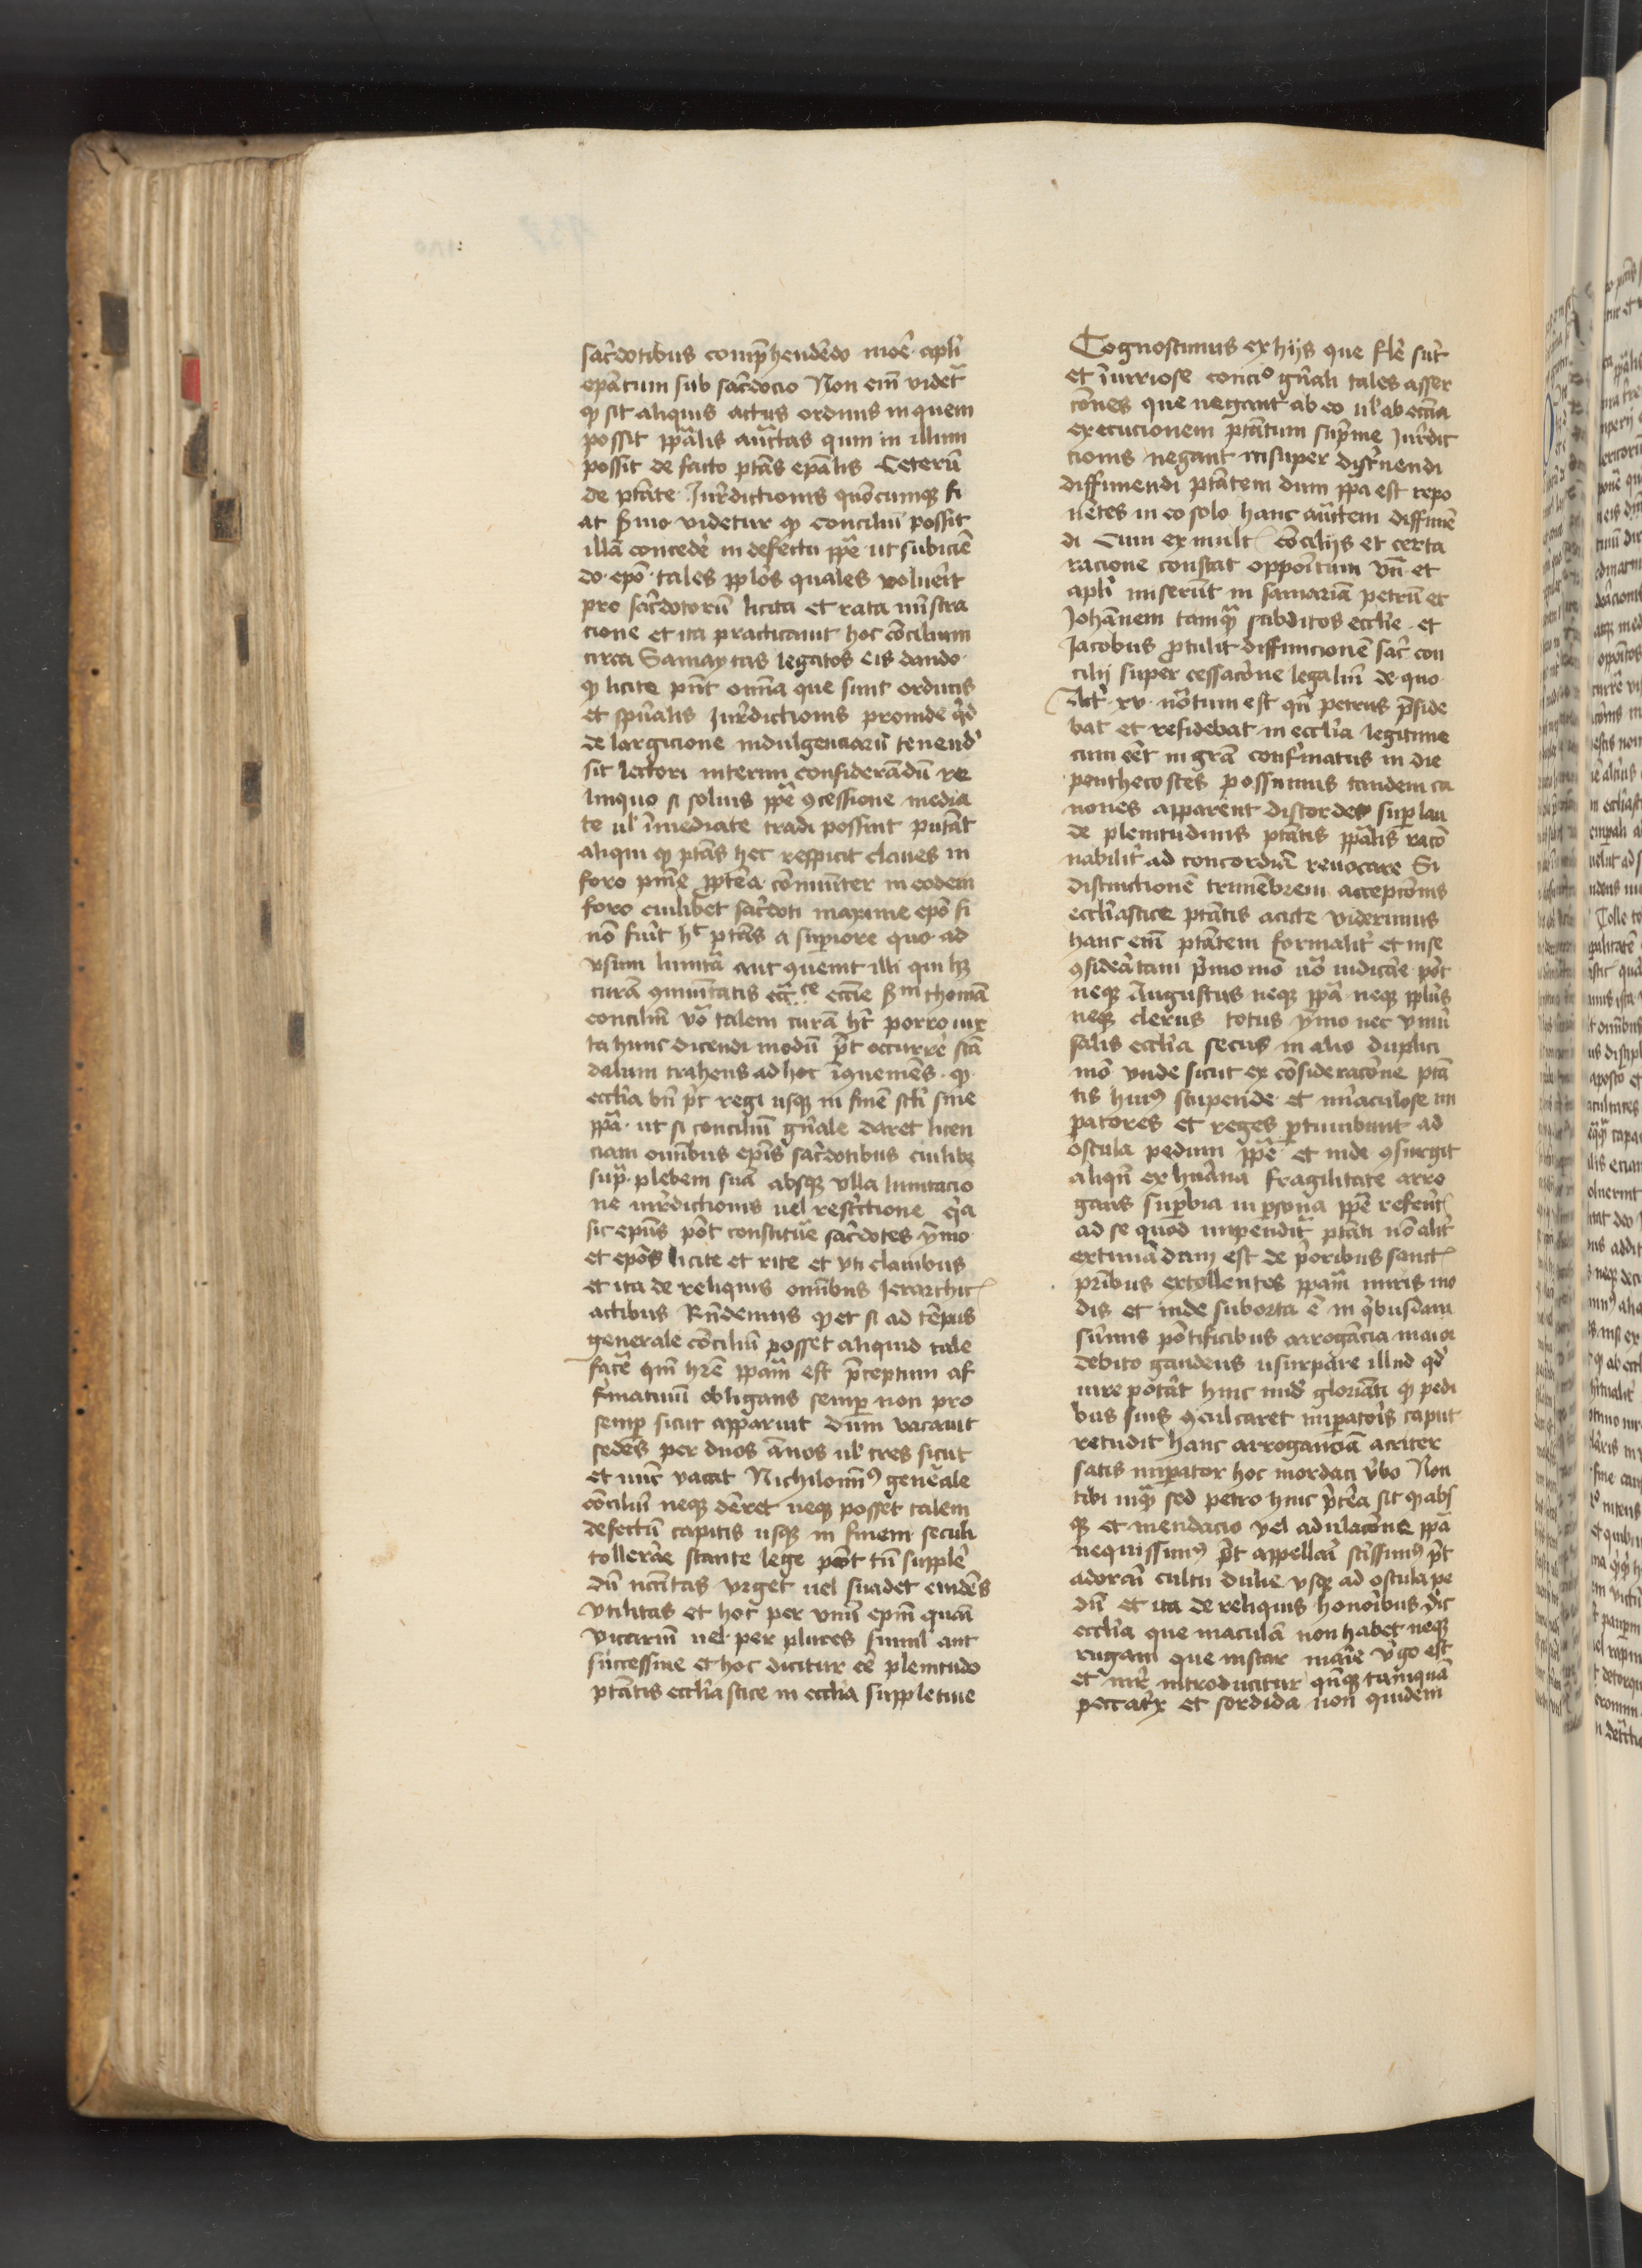 sac̃dotibus comp̃hendẽdo moẽ apl̃i
ep̃atum sub sac̃docio Non em̃ videt᷑
ꝙ sit aliquis actus ordinis in quem
possit pp̃alis auc̃tas qum in illum
possit de facto ptãs ep̃alis Ceterũ
de ptãte Jur̃dictionis quõcumqꝫ fi
at s̃mo videtur ꝙ conciliũ possit
illã concedẽ in defectu pp̃e ut subiciẽ
do ep̃o tales pp̃los quales voluẽit
pro sac̃dotorũ licita et rata mĩstra
cione et ita practicauit hoc cõcilium
circa Samaytas legatos eis dando
ꝙ licite pñt om̃ia que sunt ordinis
et spũalis Jur̃dictionis proinde qd̃
de largicione indulgenciarũ tenend̃
sit lectori interim considerãdũ re
linquo si solius pp̃e ꝯcessione media
te ul̃ ĩmediate tradi possint putãt
aliqui ꝙ ptãs hec respicit claues in
foro pñie ppt̃ea cõmuñiter in eodem
foro cuilibet sac̃doti maxime ep̃o si
nõ fũit hͨ ptãs a supiore quo ad
vsum limitã aut ꝯuenit illi qui hꝫ
curã ꝯmuñitatis ecc̃ͨᵉ eccl̃ie s̃ᵐ thomã
conciliũ vo᷑ talem curã hꝫ porro iux
ta hunc dicendi modũ p̃t occurrẽ scã
dalum trahens ad hoc ĩꝯueniẽs ꝙ
eccl̃ia bñ p̃t regi usqꝫ in finẽ sc̃li sine
pp̃a ut si conciliũ gñale daret licen
ciam om̃ibus ep̃is sac̃dotibus cuilibꝫ
sup̃ plebem suã absqꝫ vlla limitacio
ne iur̃dictionis uel rest̃ictione q̃a
sic ep̃us põt constituẽ sac̃dotes ỹmo
et ep̃os licite et rite et vti clauibus
et ita de reliquis om̃ibus Jerarchic̃
actibus Rñdemus ꝙ et si ad tẽpus
generale cõciliũ posset aliquid tale
facẽ qm̃ hr̃e pp̃am est p̃ceptum af
f̃matiuũ obligans semꝑ non pro
semꝑ sicut apparuit dum vacauit
sedẽs per duos ãnos ul̃ tres sicut
et nũc vacat Nichilomĩꝰ geñale
cõciliũ neqꝫ dẽret neqꝫ posset talem
defectũ capitis usqꝫ in finem seculi
tollerãe stante lege põt tñ supplẽ
dũ nc̃citas vrget uel suadet euidẽs
vtilitas et hoc per vnũ ep̃m quãi
vicariũ uel per plures simul aut
successiue et hoc dicitur eẽ plenitudo
ptãtis eccl̃iastice in eccl̃ia suppletiue
Cognoscimus ex hijs que fl̃e sũt
et ĩiuriose concio gñali tales asser
cõnes que negant ab eo ul̃ ab eccl̃ia
execucionem ptãtum sup̃me Jur̃dic
cionis negant insuper disc̃nendi
diffiniendi ptãtem dum pp̃a est repo
nẽtes in eo solo hanc auc̃tem diffiniẽ
di Cum ex mult̃ cõcilijs et certa
racione constat oppoĩtum vñ et
apl̃i miserũt in samariã petrũ et
Johãnem tamqꝫ subditos eccl̃ie et
Jacobus p̃tulit diffinicionẽ sac̃ con
cilij super cessacõne legaliũ de quo
Act̃ xv nõtum est qñ petrus p̃side
bat et residebat in eccl̃ia legitime
cum eẽt in gr̃a conf̃matus in die
penthecostes possumus tandem ca
nones apparent discordes suꝑ lau
de plenitudinis ptãtis pp̃alis racõ
nabilit̃ ad concordiã reuocare Si
distinctionẽ trimẽbrem accepcõnis
eccl̃iastice ptãtis acute viderimus
hanc em̃ ptãtem formalit̃ et in se
ꝯsiderãtam p̃mo mõ nõ iudicãe põt
neqꝫ Augustus neqꝫ pp̃a neqꝫ pp̃lus
neqꝫ clerus totus ỹmo nec vniũ
salis eccl̃ia secus in alio duplici
mõ vnde sicut ex cõsideracõne ptã
tis huiꝰ stupende et miraculose im
patores et reges ꝓtuiubunt ad
oscula pedum pp̃e et inde ꝯsurgit
aliqñ ex hũana fragilitate arro
gans suꝑbia in ꝑsona pp̃e referẽt̃
ad se quod impendit᷑ ptãti nõ alit̃
extimãdum est de p̃oribus sanct̃
pr̃ibus extollentes pp̃am miris mo
dis et inde suborta ẽ in q̃busdam
sũmis põtificibus arrogãcia maior
debito gaudens usurpare illud qd̃
iure potãt hinc inid̃ gloriãti ꝙ pedi
bus suis ꝯculcaret impatoris caput
retudit hanc arroganciã acriter
satis impator hoc mordaci v̂bo Non
tibi inqꝫ sed petro hinc p̃tẽa sit ꝙ abs
qꝫ et mendacio vel adulacõne pp̃a
nequissimꝰ p̃t appellari sc̃issimꝰ p̃t
adorari cultu dulie vsqꝫ ad oscula pe
dũ et ita de reliquis honoribus dic̃
eccl̃ia que maculã non habet neqꝫ
rugam que instar marie v̂go est
et mr̃ introducitur qñqꝫ tamquã
peccatrix et sordida non quidem